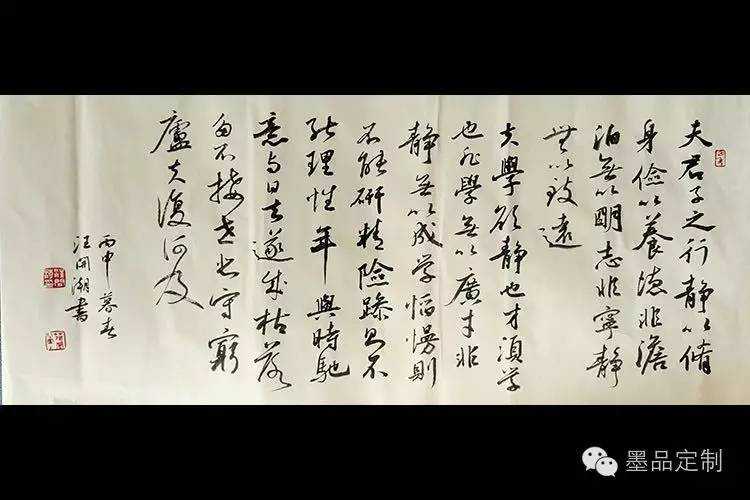 夫君子之行靜以脩
身儉以養德非澹
泊無以明志非寧静
無以致遠
夫學欲静也才須学
也非學無以廣才非
静無以成学慆慢則
不能研精險躁則不
能理性年與時馳
意与日去遂成枯落
多不接世悲守窮
廬夫復何及
丙申暮春
汪開湖書
墨品定制